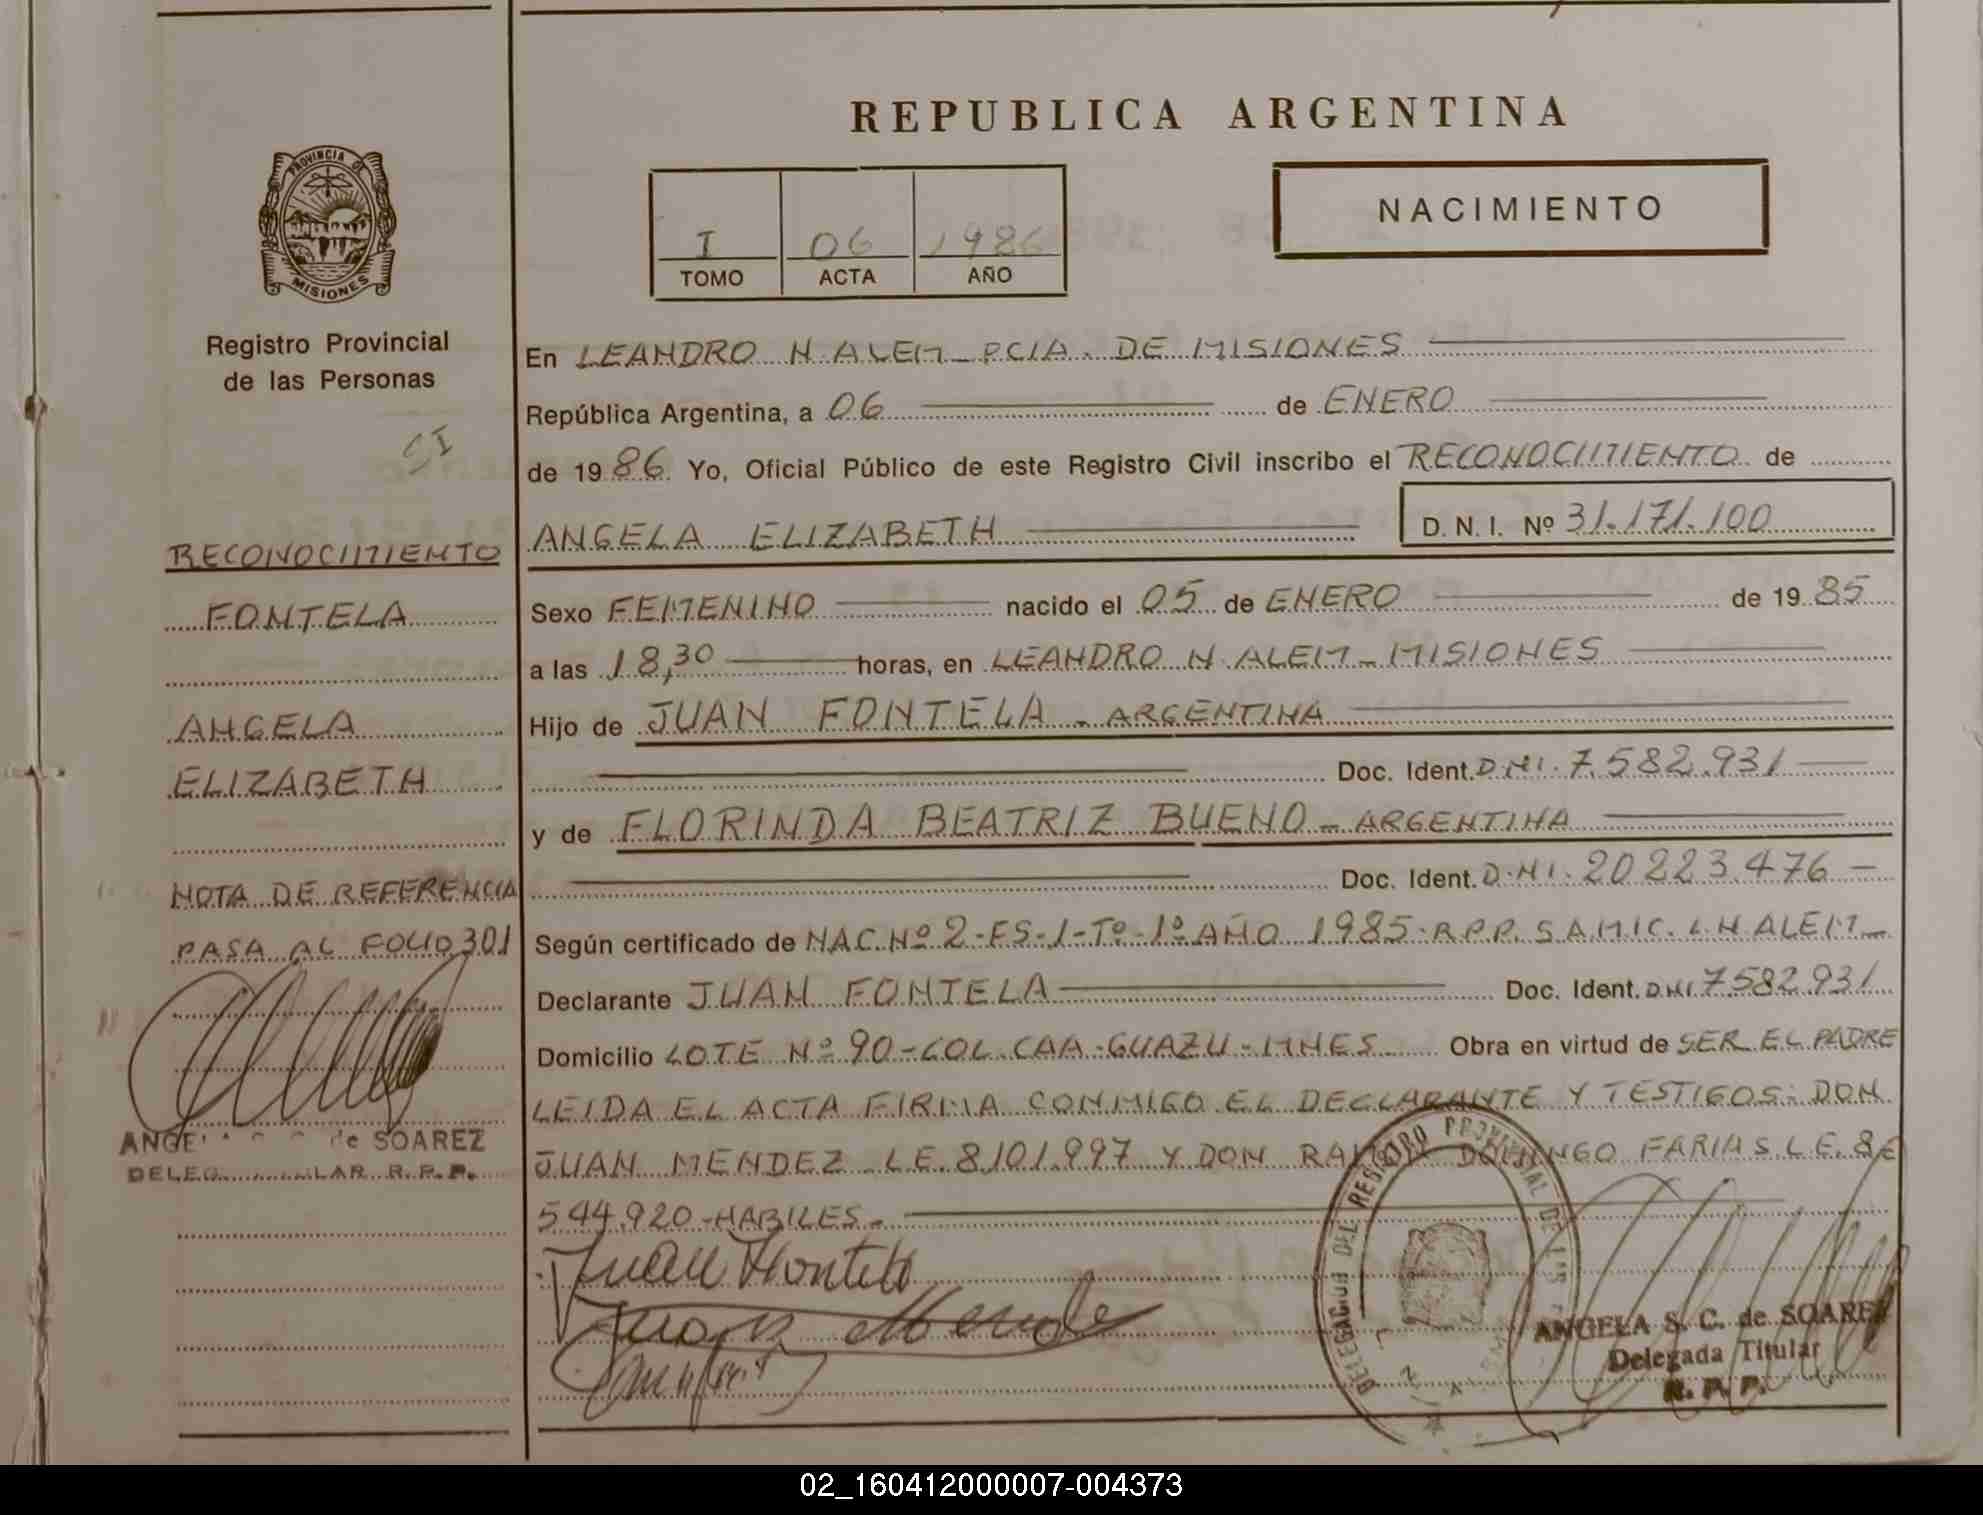 REPUBLICA ARGENTINA
PROVINCIA DE
MISIONES
I 06 1986
TOMO ACTA AÑO
NACIMIENTO
Registro Provincial
de las Personas
SI
RECONOCIMIENTO
FONTELA
ANGELA
ELIZABETH
NOTA DE REFERENCIA
PASA AL FOLIO 301
de SOAREZ
R. P. P.
En LEANDRO N. ALEM - PCIA. DE MISIONES
República Argentina, a 06 de ENERO
de 1986. Yo, Oficial Público de este Registro Civil inscribo el RECONOCIMIENTO de
ANGELA ELIZABETH D. N. I. Nº 31.171.100
Sexo FEMENINO nacido el 05 de ENERO de 1985
a las 18,30 horas, en LEANDRO N. ALEM - MISIONES
Hijo de JUAN FONTELA - ARGENTINA
Doc. Ident. DNI. 7.582.931
y de FLORINDA BEATRIZ BUENO - ARGENTINA
Doc. Ident. D.NI. 20223.476
Según certificado de NAC. Nº 2-FS-1-Tº-1º AÑO 1985-R.P.P. SAMIC. L N ALEM
Declarante JUAN FONTELA Doc. Ident. DNI 7.582.931
Domicilio LOTE Nº 90-COL. CAA-GUAZU-MNES Obra en virtud de SER EL PADRE
LEIDA EL ACTA FIRMA CONMIGO EL DECLARANTE Y TESTIGOS: DON
JUAN MENDEZ L.E. 8.101.997 Y DON DOMINGO FARIAS L.E. 8
544.920-HABILES.-
Juan
DELEGACION DEL REGISTRO PROVINCIAL DE
ANGELA S. C. de SOAREZ
Delegada Titular
R. P. P.
02_160412000007-004373